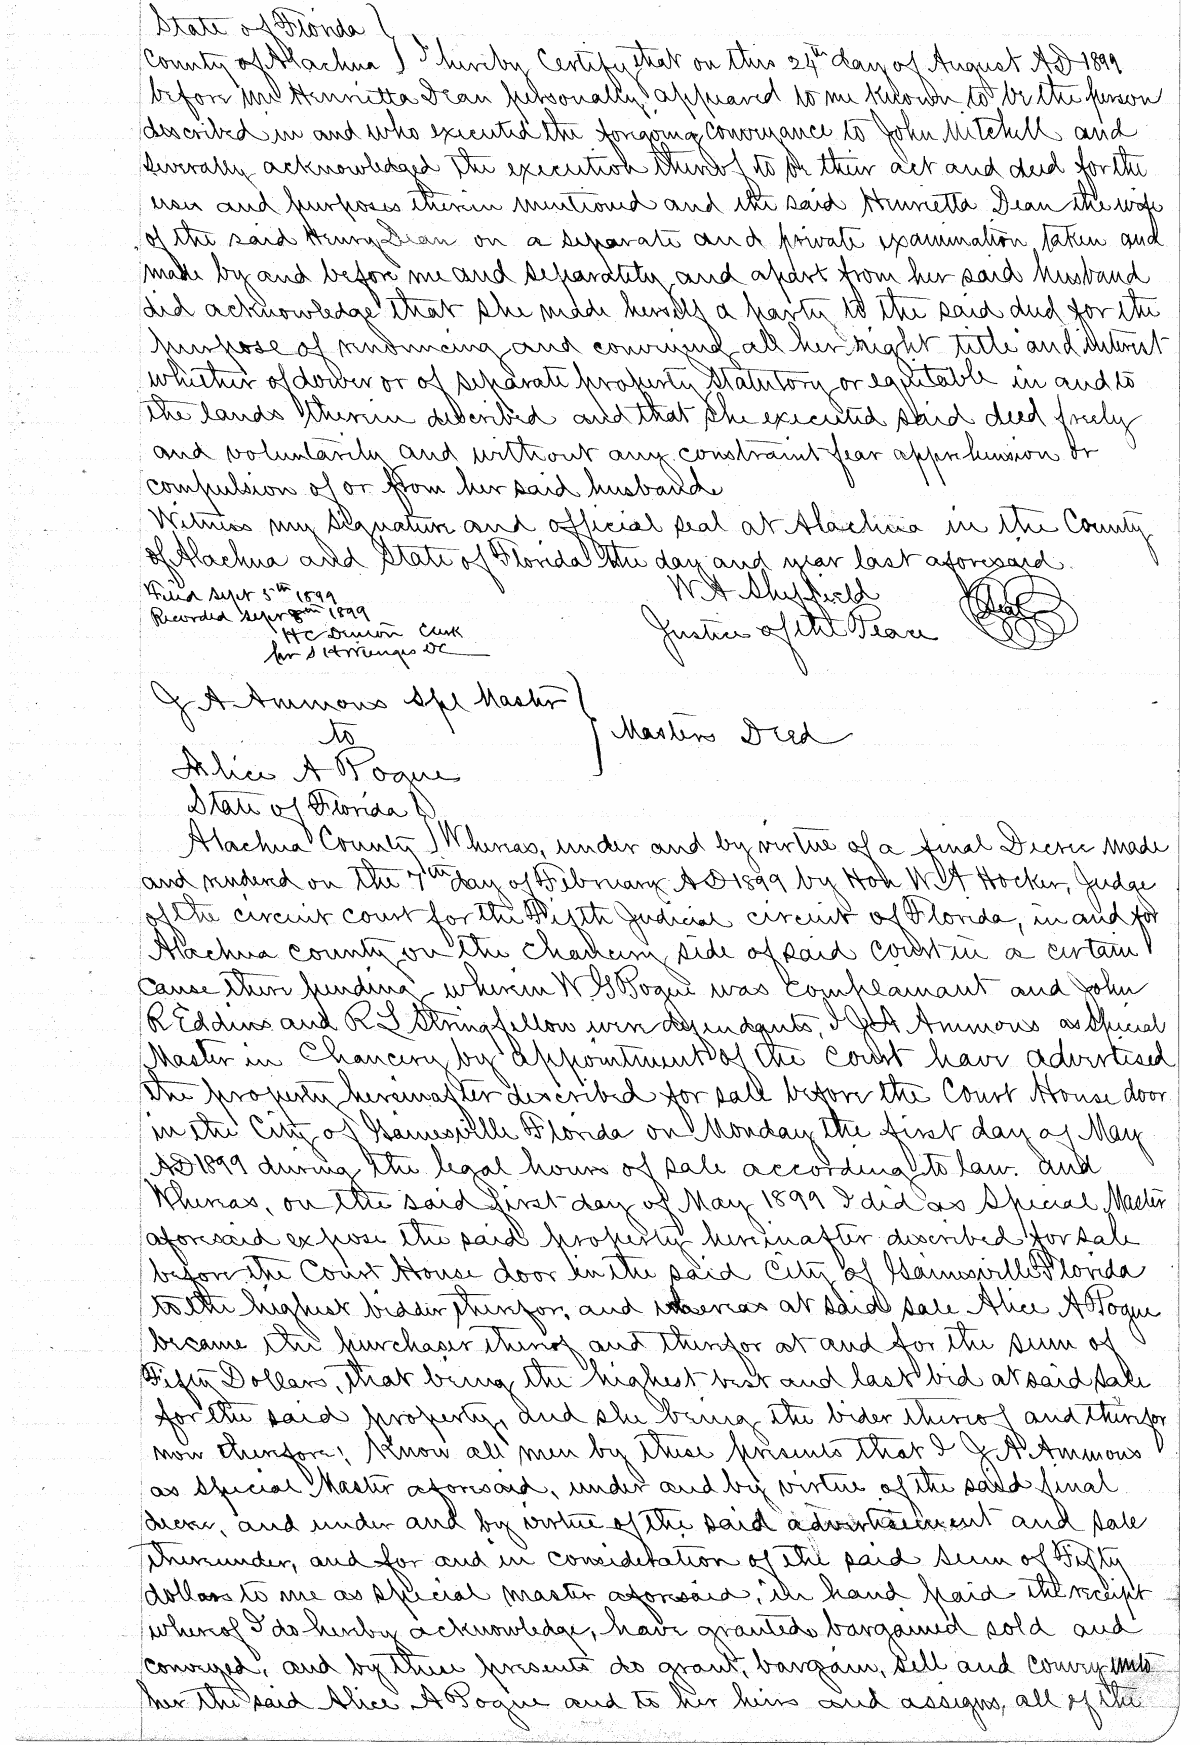 State of Florida }
County of Alachua } I hereby Certify that on this 24th day of August AD 1899
before me Henrietta Dean personally appeared to me known to be the person
described in and who executed the forgoing conveyance to John Mitchell and
severally acknowledged the execution thereof to be their act and deed for the
uses and purposes therein mentioned and the said Henrietta Dean the wife
of the said Henry Dean on a separate and private examination taken and
made by and before me and separately and apart from her said husband
did acknowledge that she made herself a party to the said deed for the
purpose of renouncing and conveying all her right title and interest
whether of dower or of separate property statutory or equitable in and to
the lands therein described and that she executed said deed freely
and voluntarily and without any constraint fear apprehension or
compulsion of or from her said husband
Witness my signature and official seal at Alachua in the County
of Alachua and State of Florida the day and year last aforesaid.
Filed Sept 5th 1899
Recorded Sept 8th 1899
H C Denson Clerk
per S H Wienges DC
W A Sheffield
Justice of the Peace
Seal
J A Ammons Spl Master }
to
Masters Deed
Alice A Pogue
State of Florida }
Alachua County } Whereas, under and by virtue of a final Decree made
and rendered on the 7th day of February AD 1899 by Hon W A Hocker, Judge
of the circuit court for the Fifth Judicial circuit of Florida, in and for
Alachua county on the chancery side of said court in a certain
cause there pending wherein W G Pogue was complainant and John
R Eddins and R L Stringfellow were defendants, I J A Ammons as special
Master in Chancery by appointment of the court have advertised
the property hereinafter described for sale before the Court House door
in the City of Gainesville Florida on Monday the first day of May
AD 1899 during the legal hours of sale according to law. and
Whereas, on the said first day of May 1899 I did as Special Master
aforesaid expose the said property hereinafter described for sale
before the Court House door in the said City of Gainesville Florida
to the highest bidder therefor, and whereas at said sale Alice A Pogue
became the purchaser thereof and therefor at and for the sum of
Fifty Dollars, that being the highest best and last bid at said sale
for the said property, and she being the bider thereof and therefor
now therefore; Know all men by these presents that I J A Ammons
as special Master aforesaid, under and by virtue of the said final
decree, and under and by virtue of the said advertisement and sale
thereunder, and for and in consideration of the said sum of Fifty
dollars to me as special master aforesaid, in hand paid the receipt
whereof I do hereby acknowledge, have granted bargained sold and
conveyed, and by these presents do grant, bargain, sell and convey unto
her the said Alice A Pogue and to her heirs and assigns, all of the